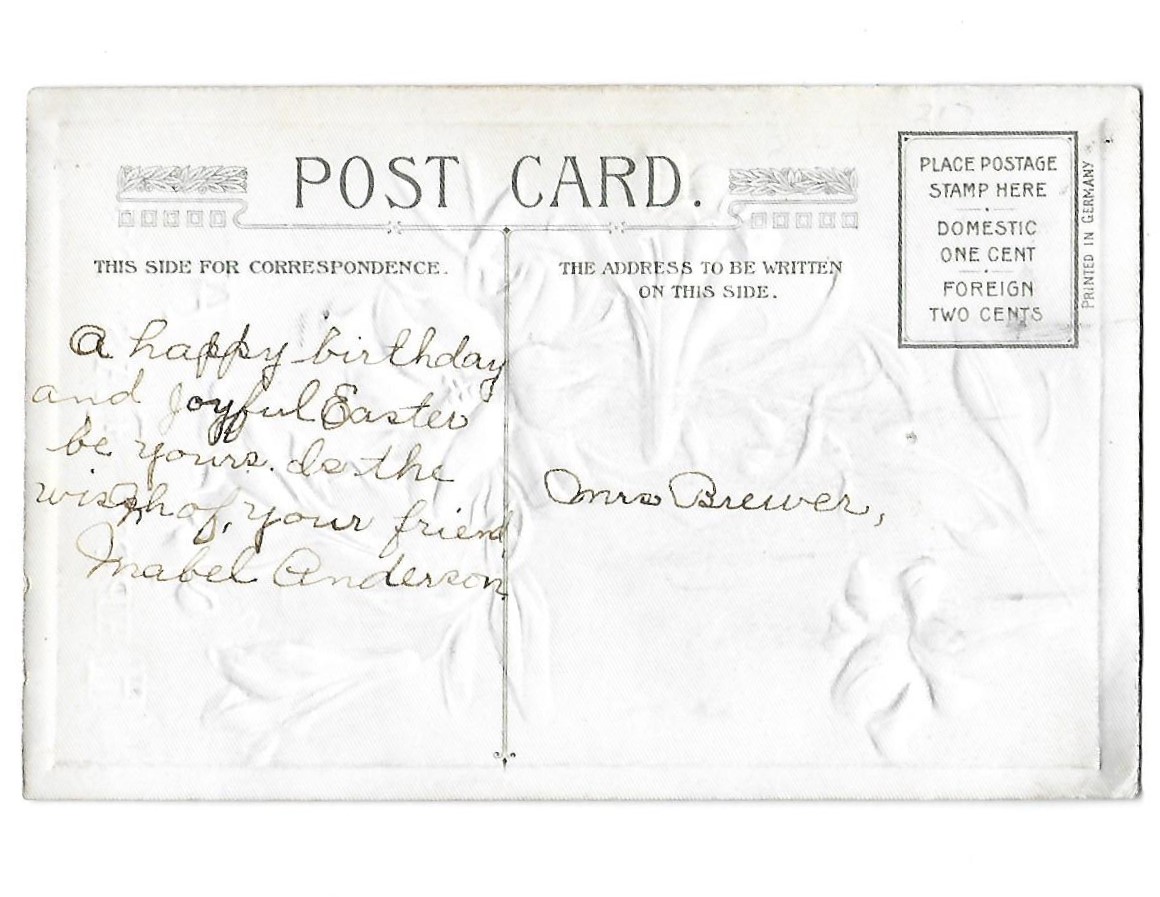 POST CARD.
THIS SIDE FOR CORRESPONDENCE.
A happy birthday
and joyful Easter
be yours. Is the
wish of, your friend
Mabel Anderson.
THE ADDRESS TO BE WRITTEN
ON THIS SIDE.
Mrs Brewer,
PLACE POSTAGE
STAMP HERE
DOMESTIC
ONE CENT
FOREIGN
TWO CENTS
PRINTED IN GERMANY